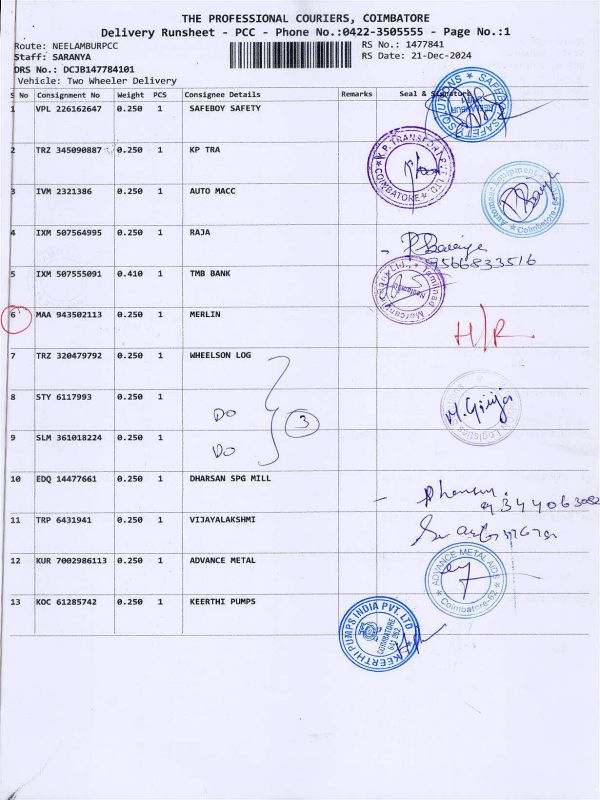 THE PROFESSIONAL COURIERS, COIMBATORE
Delivery Runsheet - PCC - Phone No.:0422-3505555 - Page No.:1
Route: NEELAMBURPCC RS No.: 1477841
Staff: SARANYA RS Date: 21-Dec-2024
DRS No.: DCJB147784101
Vehicle: Two Wheeler Delivery
S No Consignment No Weight PCS Consignee Details Remarks Seal & Signature
1 VPL 226162647 0.250 1 SAFEBOY SAFETY
2 TRZ 345090887 0.250 1 KP TRA
K.P. TRANSFORM PVT LTD. COIMBATORE
3 IVM 2321386 0.250 1 AUTO MACC
Coimbatore
4 IXM 507564995 0.250 1 RAJA
9566833516
5 IXM 507555091 0.410 1 TMB BANK
Tamilnad
6 MAA 943502113 0.250 1 MERLIN
H/R
7 TRZ 320479792 0.250 1 WHEELSON LOG
8 STY 6117993 0.250 1
DO 3
M. Girija
9 SLM 361018224 0.250 1
DO
10 EDQ 14477661 0.250 1 DHARSAN SPG MILL
11 TRP 6431941 0.250 1 VIJAYALAKSHMI
12 KUR 7002986113 0.250 1 ADVANCE METAL
ADVANCE METAL AIDS Coimbatore-62
13 KOC 61285742 0.250 1 KEERTHI PUMPS
KEERTHI PUMPS INDIA PVT. LTD
COIMBATORE
641 062